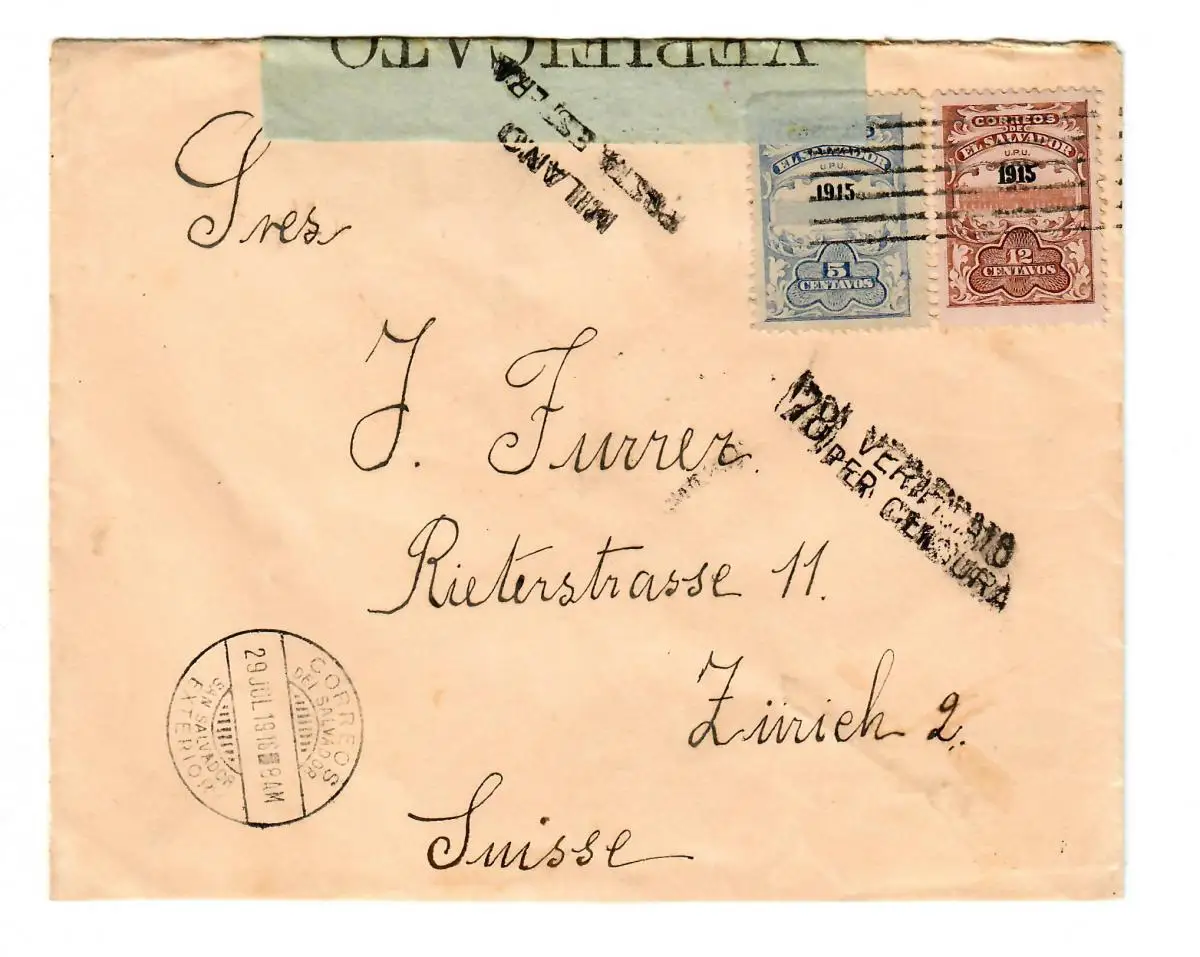 VERIFICATO
MILANO
POSTA ESTERA
CORREOS
DE
EL SALVADOR
U.P.U.
1915
5
CENTAVOS
CORREOS
DE
EL SALVADOR
U.P.U.
1915
12
CENTAVOS
Sres
J. Furrer.
VERIFICATO
PER CENSURA
Rieterstrasse 11.
Zürich 2.
Suisse
CORREOS
DEL SALVADOR
29 JUL 1916 8 AM
SAN SALVADOR
EXTERIOR